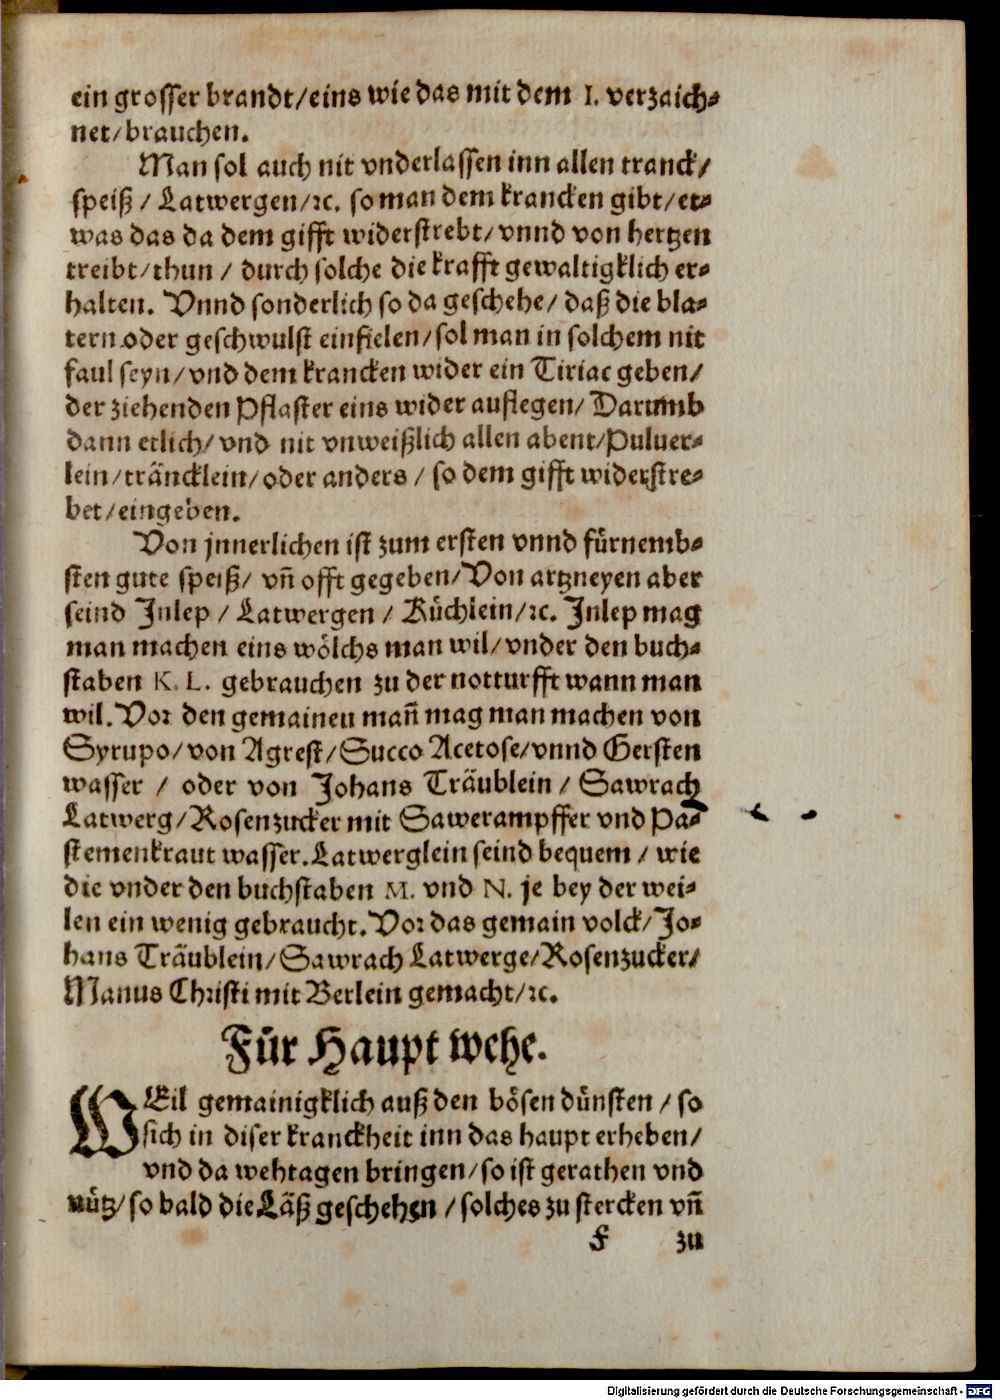 ein grosser brandt/eins wie das mit dem I. verzaich⸗
net/brauchen.
Man sol auch nit vnderlassen inn allen tranck/
speiß / Latwergen/ꝛc. so man dem krancken gibt/et⸗
was das da dem gifft widerstrebt/vnnd von hertzen
treibt/thun / durch solche die krafft gewaltigklich er⸗
halten. Vnnd sonderlich so da geschehe/ daß die bla⸗
tern oder geschwulst einfielen/sol man in solchem nit
faul seyn/vnd dem krancken wider ein Tiriac geben/
der ziehenden Pflaster eins wider auflegen/ Darumb
dann etlich/ vnd nit vnweißlich allen abent/Puluer⸗
lein/träncklein/oder anders / so dem gifft widerstre⸗
bet/eingeben.
Von jnnerlichen ist zum ersten vnnd fürnemb⸗
sten gute speiß/ vñ offt gegeben/Von artzneyen aber
seind Julep / Latwergen / Küchlein/ꝛc. Julep mag
man machen eins wölchs man wil/vnder den buch⸗
staben K. L. gebrauchen zu der notturfft wann man
wil. Vor den gemainen mañ mag man machen von
Syrupo/von Agrest/Succo Acetose/vnnd Gersten
wasser / oder von Johans Träublein / Sawrach
Latwerg/Rosenzucker mit Sawerampffer vnd Pa⸗
stemenkraut wasser. Latwerglein seind bequem / wie
die vnder den buchstaben M. vnd N. je bey der wei⸗
len ein wenig gebraucht. Vor das gemain volck/Jo⸗
hans Träublein/Sawrach Latwerge/Rosenzucker/
Manus Christi mit Berlein gemacht/ꝛc.
Für Haupt wehe.
WEil gemainigklich auß den bösen dünsten / so
sich in diser kranckheit inn das haupt erheben/
vnd da wehtagen bringen/so ist gerathen vnd
nütz/so bald die Läß geschehen / solches zu stercken vñ
F zu
Digitalisierung gefördert durch die Deutsche Forschungsgemeinschaft - DFG